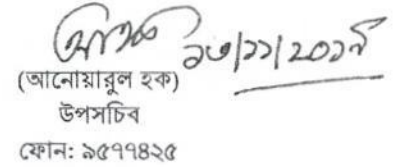 ১৩/১১/২০১৭
(আনোয়ারুল হক)
উপসচিব
ফোন: ৯৫৭৭৪২৫